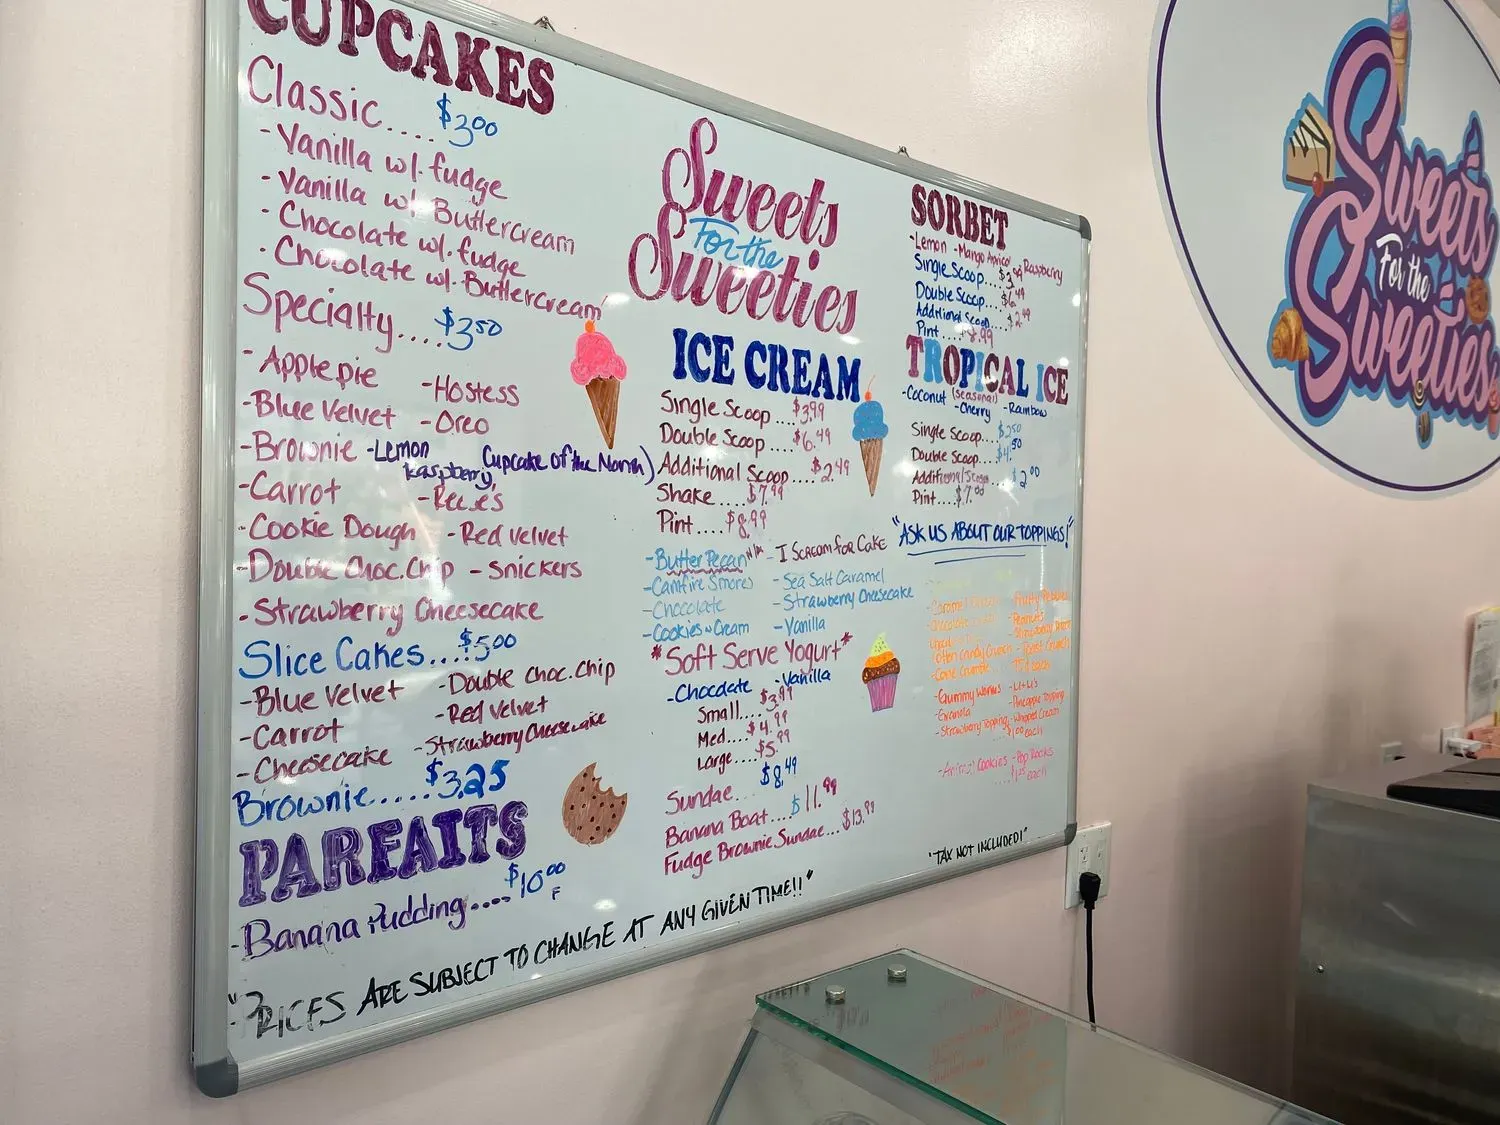 CUPCAKES
Classic....$3.00
-Vanilla w/. fudge
-Vanilla w/ Buttercream
-Chocolate w/. fudge
-Chocolate w/. Buttercream
Specialty....$3.50
-Apple pie -Hostess
-Blue Velvet -Oreo
-Brownie -Lemon Raspberry, Cupcake of the Month)
-Carrot -Reese's
-Cookie Dough -Red Velvet
-Double Choc.Chip -Snickers
-Strawberry Cheesecake
Slice Cakes...$5.00
-Blue Velvet -Double Choc.Chip
-Carrot -Red Velvet
-Cheesecake -Strawberry Cheesecake
Brownie.....$3.25
PARFAITS
-Banana Pudding....$10.00
"PRICES ARE SUBJECT TO CHANGE AT ANY GIVEN TIME!!"
Sweets
For the
Sweeties
ICE CREAM
Single Scoop...$3.99
Double Scoop...$6.49
Additional Scoop....$2.49
Shake....$7.99
Pint....$8.99
-Butter Pecan -I Scream for Cake
-Campfire Smores -Sea Salt Caramel
-Chocolate -Strawberry Cheesecake
-Cookies n Cream -Vanilla
*Soft Serve Yogurt*
-Chocolate -Vanilla
Small....$3.99
Med....$4.99
Large....$5.99
Sundae...$8.49
Banana Boat....$11.99
Fudge Brownie Sundae...$13.99
SORBET
-Lemon -Mango Apricot -Raspberry
Single Scoop....
Double Scoop...
Additional Scoop....$2.49
Pint....$8.99
TROPICAL ICE
-Coconut (Seasonal)
-Cherry -Rainbow
Single Scoop...$2.50
Double Scoop....$4.50
Additional Scoop...$2.00
Pint....$7.00
"ASK US ABOUT OUR TOPPINGS!"
-Fruity Pebbles
-Peanuts
-Cotton Candy Crunch
-Cone Crumble
-Gummy Worms
-Granola -Pineapple Topping
-Strawberry Topping -Whipped Cream
$1.00 each
-Animal Cookies -Pop Rocks
"TAX NOT INCLUDED!"
Sweets
For the
Sweeties